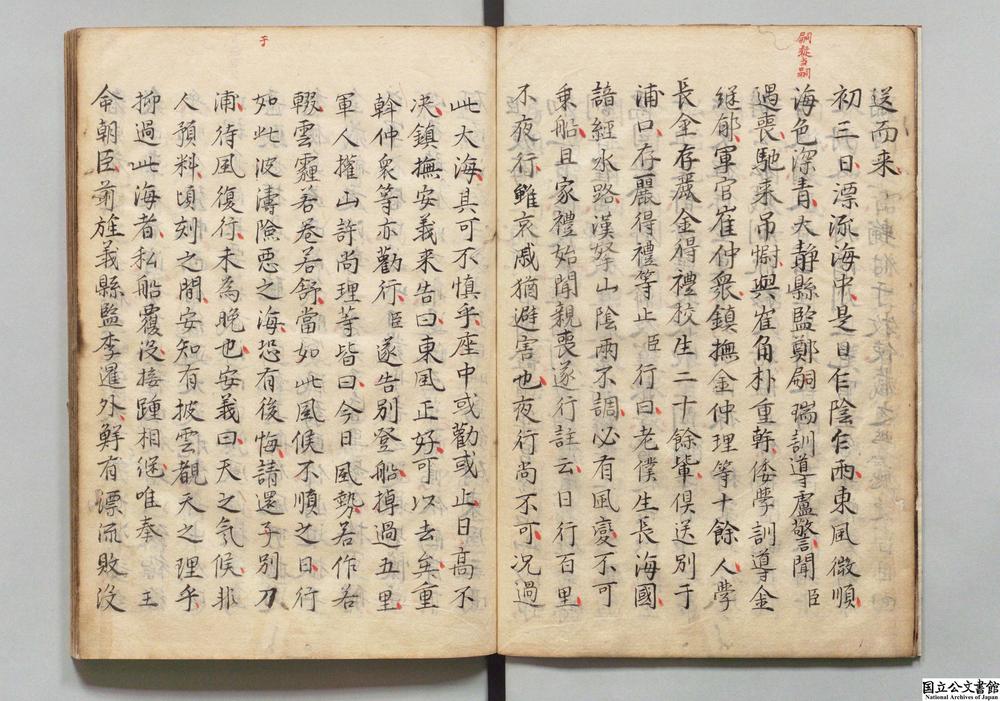 嗣疑當嗣
送而来
初三日漂流海中是日乍陰乍雨東風微順
海色深青大静縣監鄭嗣瑞訓導盧警聞臣
遇喪馳来吊慰與崔角朴重幹倭學訓導金
継郁軍官崔仲衆鎮撫金仲理等十餘人學
長金存麗金得禮校生二十餘輩倶送別于
浦口存麗得禮等止臣行曰老僕生長海國
諳經水路漢拏山陰雨不調必有風變不可
乗船且家禮始聞親喪遂行註云日行百里
不夜行雖哀戚猶避害也夜行尚不可况過
于
此大海其可不慎乎座中或勸或止日高不
决鎮撫安義来告曰東風正好可以去矣重
幹仲衆等亦勸行臣遂告別登船掉過五里
軍人權山許尚理等皆曰今日風勢若作若
輟雲霾若卷若舒當如此風候不順之日行
如此波濤險悪之海恐有後悔請還子別刀
浦待風復行未為晩也安義曰天之气候非
人預料頃刻之間安知有披雲覩天之理乎
抑過此海者私船覆没接踵相継唯奉王
命朝臣前旌義縣監李暹外鮮有漂流敗没
国立公文書館
National Archives of Japan